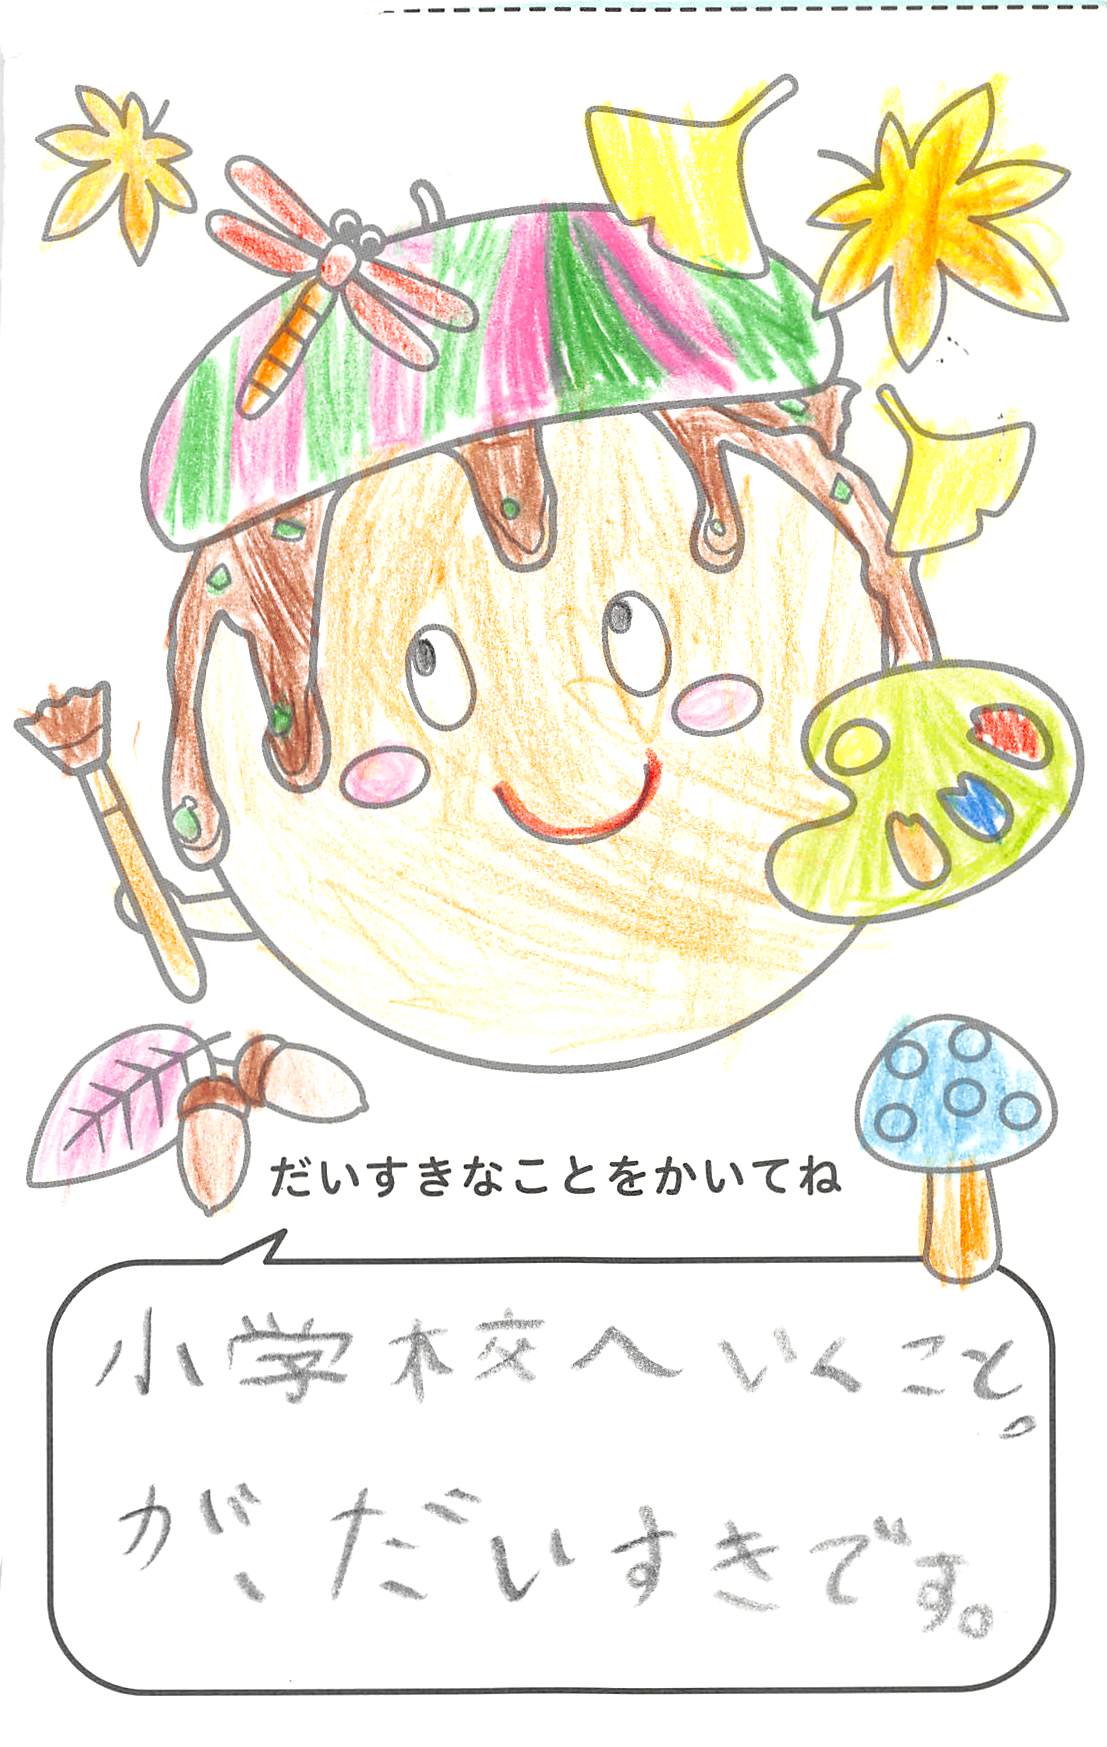 だいすきなことをかいてね
小学校へいくこと。
が、だいすきです。